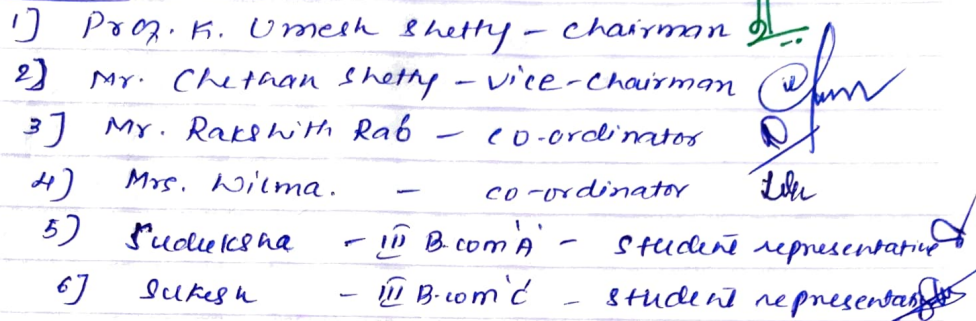 1] Prof. K. Umesh Shetty - Chairman
2] Mr. Chethan Shetty - Vice-Chairman
3] Mr. Rakshith Rao - co-ordinator
4) Mrs. Wilma. - co-ordinator
5) Sudeeksha - III B.com 'A' - Student representative
6] Sukesh - III B.com 'C' - Student representative